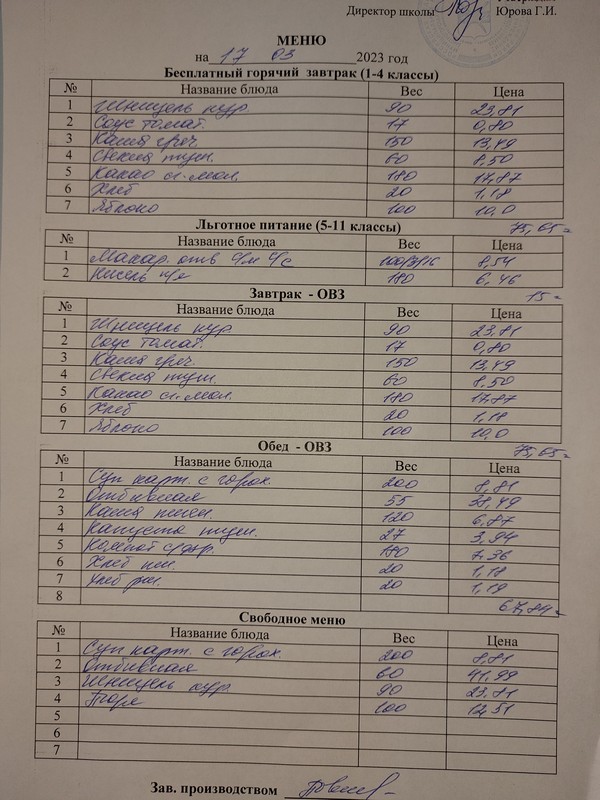 Директор школы Юрова Г.И.
МЕНЮ
на 17 03 2023 год
Бесплатный горячий завтрак (1-4 классы)
№ Название блюда Вес Цена
1 Шницель кур. 90 23,81
2 Соус томат. 17 0,80
3 Каша греч. 150 13,49
4 Свекла туш. 60 8,50
5 Какао сг. мол. 180 17,87
6 Хлеб 20 1,18
7 Яблоко 100 10,0
75,65=
Льготное питание (5-11 классы)
№ Название блюда Вес Цена
1 Макар. отв с/м с/с 100/3/16 8,54
2 Кисель 180 6,46
15=
Завтрак - ОВЗ
№ Название блюда Вес Цена
1 Шницель кур 90 23,81
2 Соус томат. 17 0,80
3 Каша греч. 150 13,49
4 Свекла туш. 60 8,50
5 Какао сг. мол. 180 17,87
6 Хлеб 20 1,18
7 Яблоко 100 10,0
75,65=
Обед - ОВЗ
№ Название блюда Вес Цена
1 Суп карт. с горох. 200 8,81
2 Отбивная 55 38,49
3 Каша пшен. 120 6,87
4 Капуста туш. 27 3,94
5 Компот с/фр. 180 7,36
6 Хлеб пш. 20 1,18
7 Хлеб рж. 20 1,19
8 67,84=
Свободное меню
№ Название блюда Вес Цена
1 Суп карт. с горох. 200 8,81
2 Отбивная 60 41,99
3 Шницель кур. 90 23,81
4 Пюре 100 12,51
5
6
7
Зав. производством